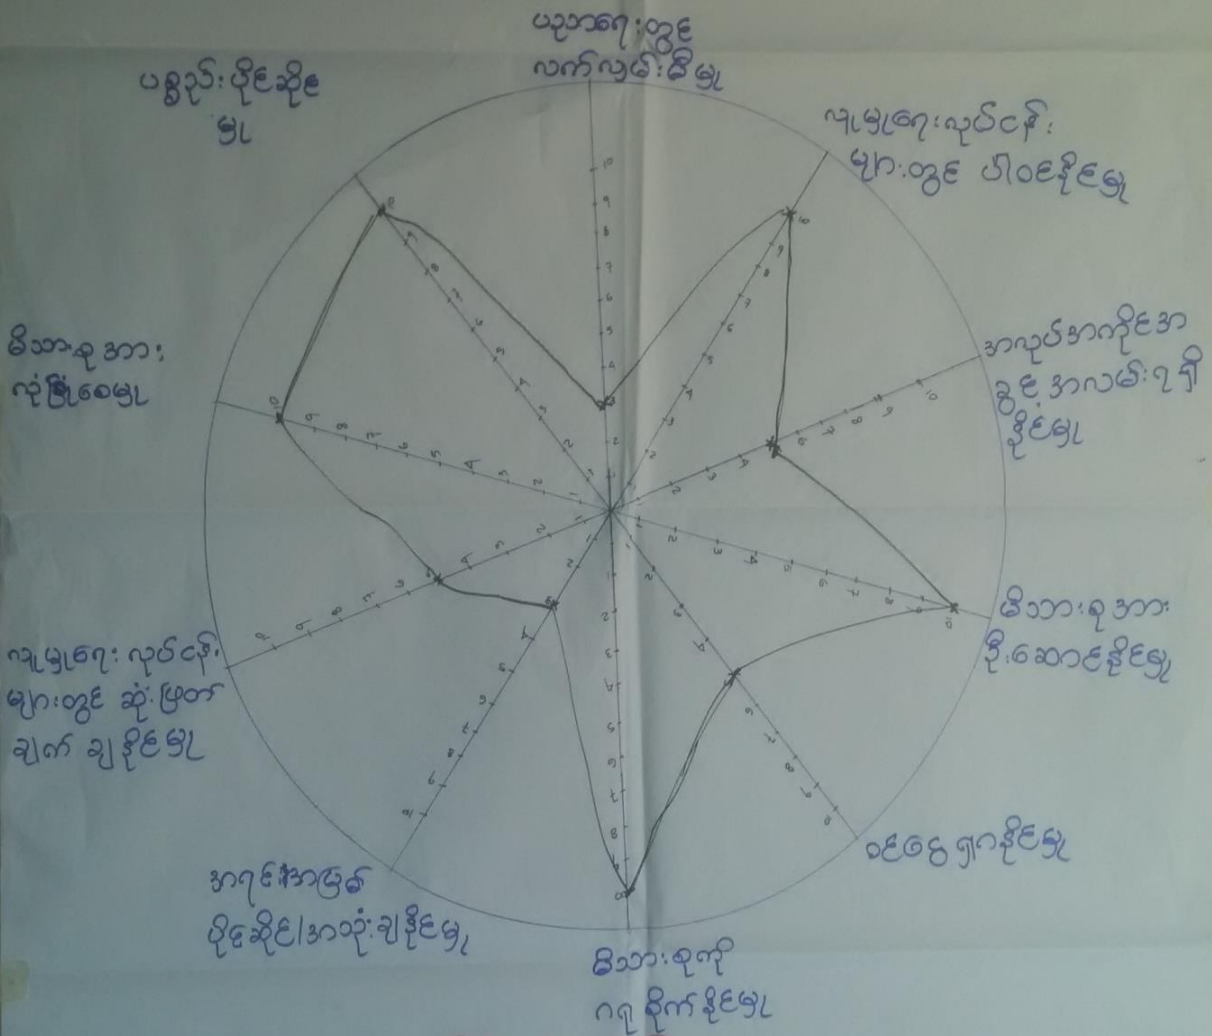 ပညာရေးတွင်
လက်လှမ်းမီမှု
လူမှုရေးလုပ်ငန်း
များတွင် ပါဝင်နိုင်မှု
အလုပ်အကိုင်အ
ခွင့်အလမ်းရရှိ
နိုင်မှု
မိသားစုအား
ဦးဆောင်နိုင်မှု
ဝင်ငွေရှာနိုင်မှု
မိသားစုကို
ဂရုစိုက်နိုင်မှု
အရင်းအမြစ်
ပိုင်ဆိုင်/အသုံးချနိုင်မှု
လူမှုရေးလုပ်ငန်း
များတွင် ဆုံးဖြတ်
ချက် ချနိုင်မှု
မိသားစုအား
လုံခြုံစေမှု
ပစ္စည်းပိုင်ဆိုင်
မှု